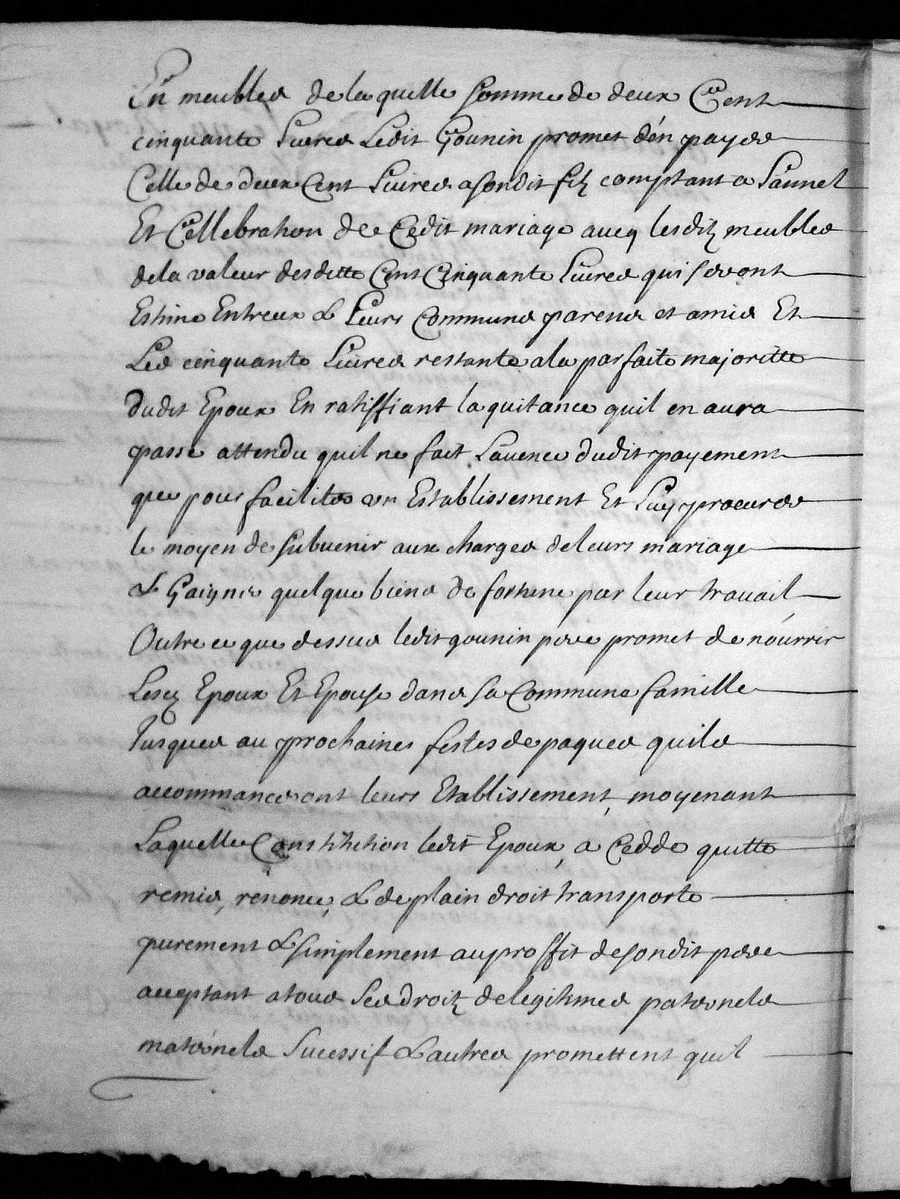 En meubles de laquelle somme de deux Cent
cinquante livres Ledit Gounin promet d'en payer
Celle de deux Cent Livres a sondit filz comptant a Lannel
Et Cellebration de Cedit mariage aveq lesditz meubles
de la valeur desditte Cent Cinquante Livres qui seront
Estime Entreux & Leurs Communs parens et amis Et
Les cinquante Livres restante a la parfaite majoritte
dudit Epoux En ratiffiant la quitance quil en aura
passe attendu quil ne fait Lavence dudit payement
que pour faciliter un Establissement Et Luy procurer
le moyen de subvenir aux charges de leurs mariage
& Gaigner quelque biens de fortune par leur travail
Outre ce que dessus ledit gounin pere promet de nourrir
Lesdz Epoux Et Epouse dans sa Commune famille
Jusques au prochaines festes de paques quils
accommanceront leurs Etablissement, moyenant
Laquelle Constitution ledit Epoux, a Cedde quitte
remis, renonce, & de plain droit transporte
purement & simplement au proffit de sondit pere
acceptant a tous ses droitz de legitimes paternels
maternels sucessif & autres promettent quil